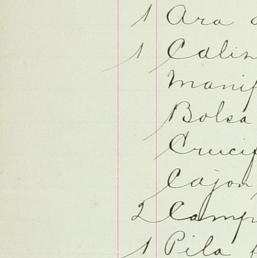 1 Ara
1 Caliz
Manif
Bolsa
Crucif
Cajon
2 Camp
1 Pila